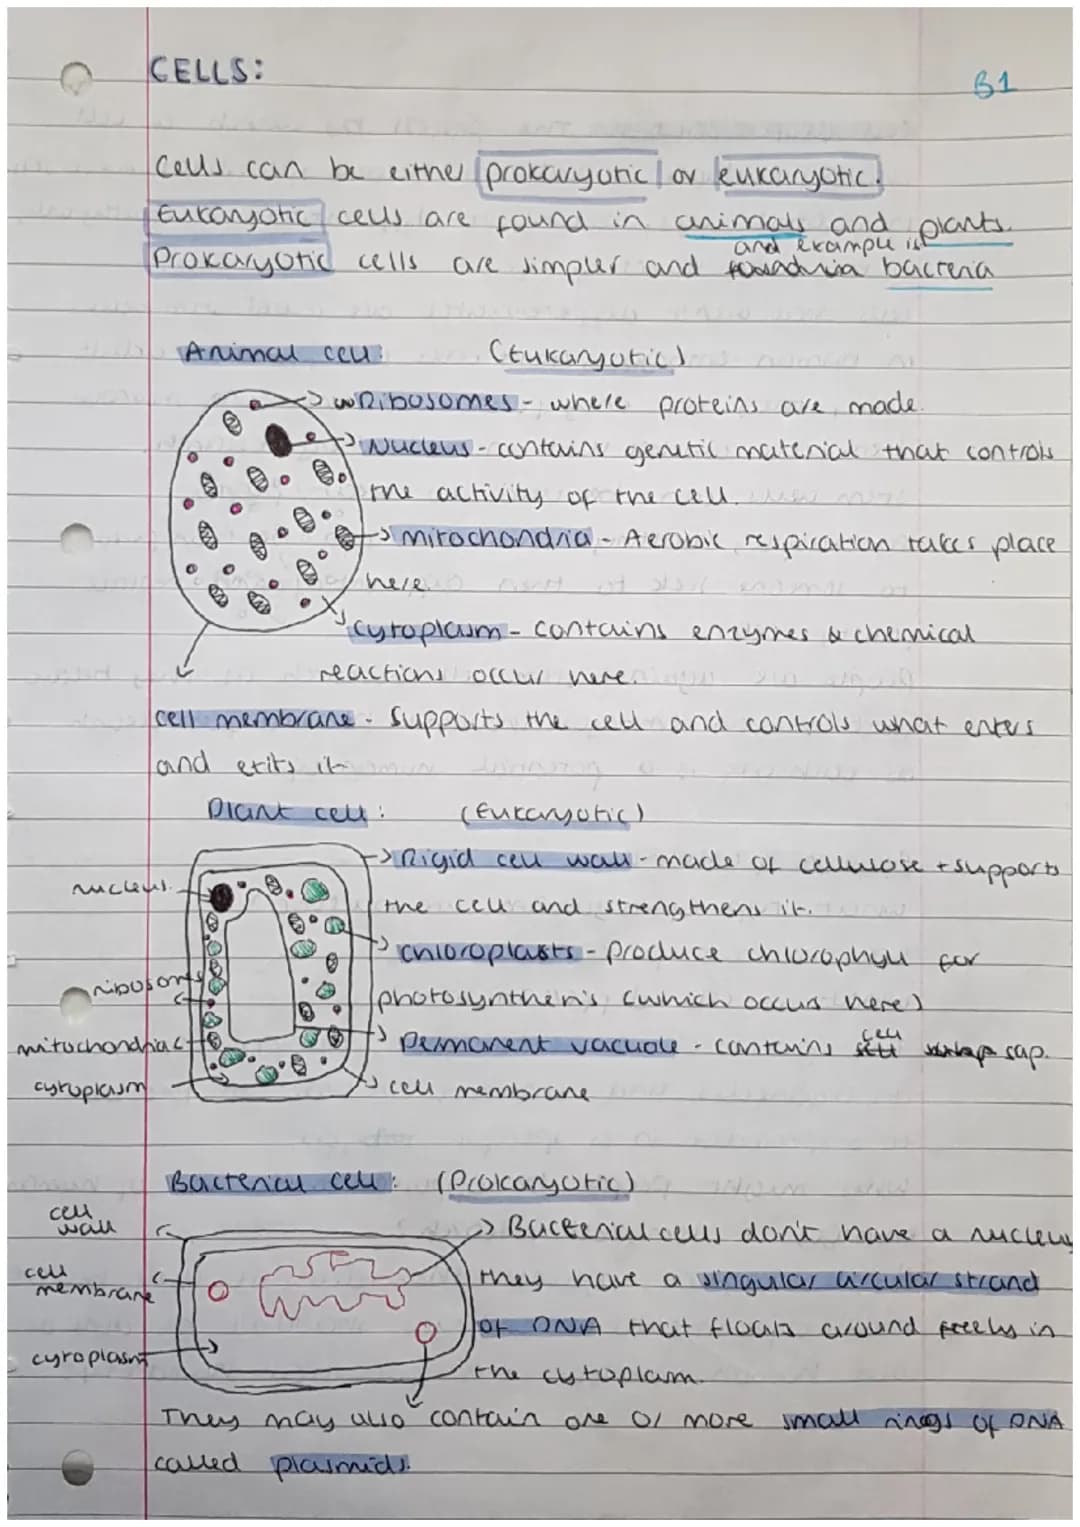 CELLS:
B1
Cells can be either prokaryotic or eukaryotic.
Eukaryotic cells are found in animals and plants.
and example is
Prokaryotic cells are simpler and bacteria
Animal cell: (Eukaryotic)
Ribosomes - where proteins are made.
Nucleus - contains genetic material that controls
the activity of the cell.
mitochondria - Aerobic respiration takes place
here.
cytoplasm - contains enzymes & chemical
reactions occur here.
cell membrane - supports the cell and controls what enters
and exits it
Plant cell: (Eukaryotic)
Rigid cell wall - made of cellulose + supports
nucleus
the cell and strengthens it.
chloroplasts - produce chlorophyll for
ribosomes
photosynthesis (which occurs here)
mitochondria
Permanent vacuole - contains cell sap.
cytoplasm
cell membrane
Bacterial cell: (Prokaryotic)
cell
wall
Bacterial cells don't have a nucleus
cell
membrane
they have a singular circular strand
of DNA that floats around freely in
cytoplasm
the cytoplasm.
They may also contain one or more small rings of DNA
called plasmids.